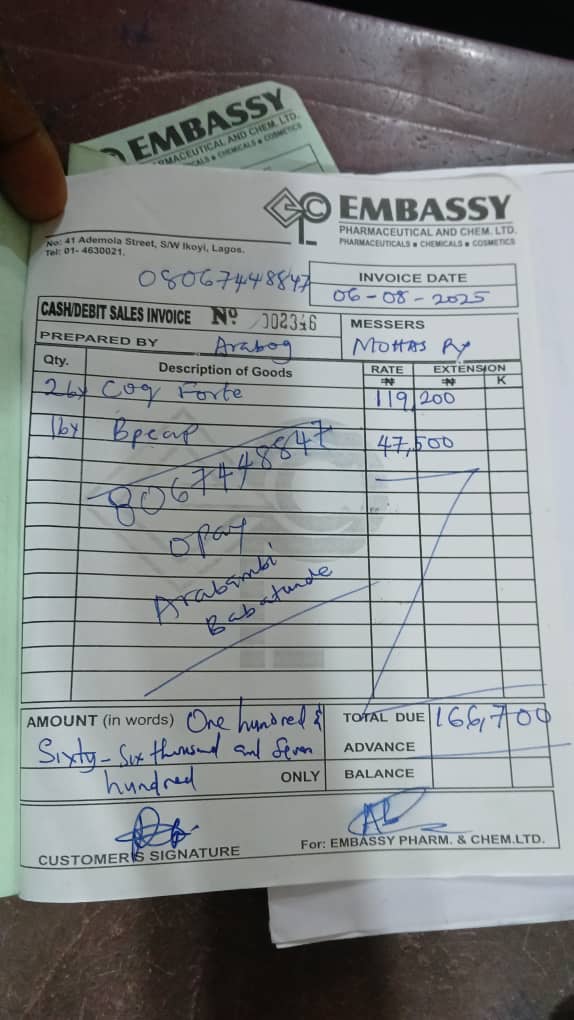 EMBASSY
PHARMACEUTICAL AND CHEM. LTD.
CALS ■ CHEMICALS ■ COSMETICS
EMBASSY
PHARMACEUTICAL AND CHEM. LTD.
PHARMACEUTICALS ■ CHEMICALS ■ COSMETICS
No: 41 Ademola Street, S/W Ikoyi, Lagos.
Tel: 01- 4630021.
08067448847
INVOICE DATE
06-08-2025
CASH/DEBIT SALES INVOICE No 002346
MESSERS
PREPARED BY Arabog
MOHAS Px
Qty. Description of Goods RATE EXTENSION
₦ ₦ K
Coq Forte 119,200
Bpcap 47,500
8067448847
opay
Arabambi
Babatunde
AMOUNT (in words) One hundred &
Sixty-Six thousand and Seven
hundred ONLY
TOTAL DUE 166,700
ADVANCE
BALANCE
CUSTOMER'S SIGNATURE
For: EMBASSY PHARM. & CHEM.LTD.